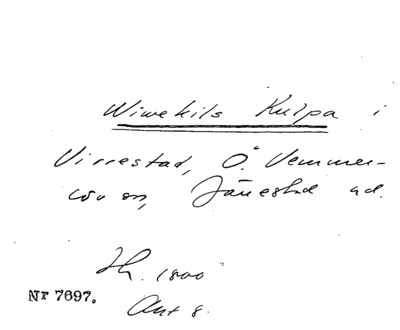 Wiwekils Kulpa i
Virrestad, Ö. Vemmer-
löv sn, Järrestad hd.
Jh. 1800
Nr 7697.
Akt 8.